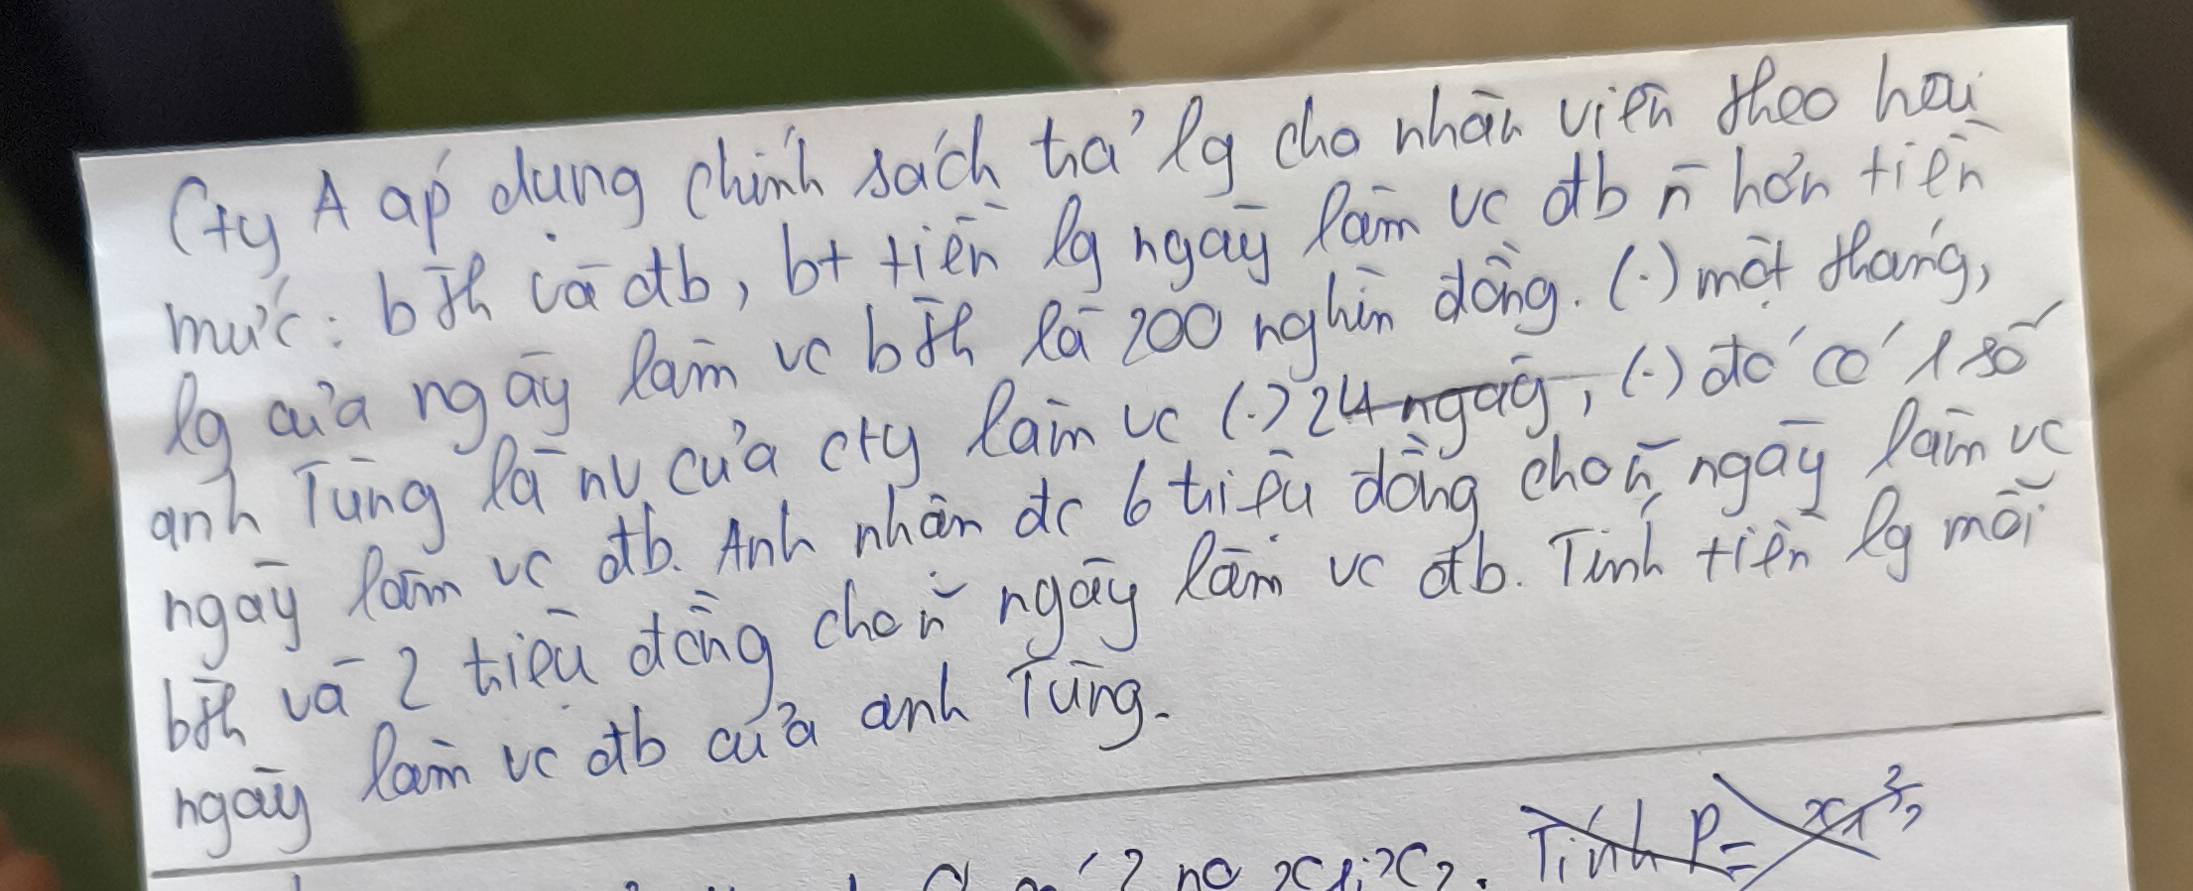 Cty A áp dụng chính sách trả lg cho nhân viên theo hai
mức: bth và đb, bt tiền lg ngày làm vc đb n̄ hơn tiền
lg của ngày làm vc bth là 200 nghìn đồng. (.) một tháng,
anh Tùng là nv của cty làm vc (.) 24 ngày, (.) đó có 1 số
ngày làm vc đb. Anh nhận đc 6 triệu đồng cho n̄ ngày làm vc
bth và 2 triệu đồng cho n̄ ngày làm vc đb. Tính tiền lg mỗi
ngày làm vc đb của anh Tùng.
2 no x1; x2. Tính P =